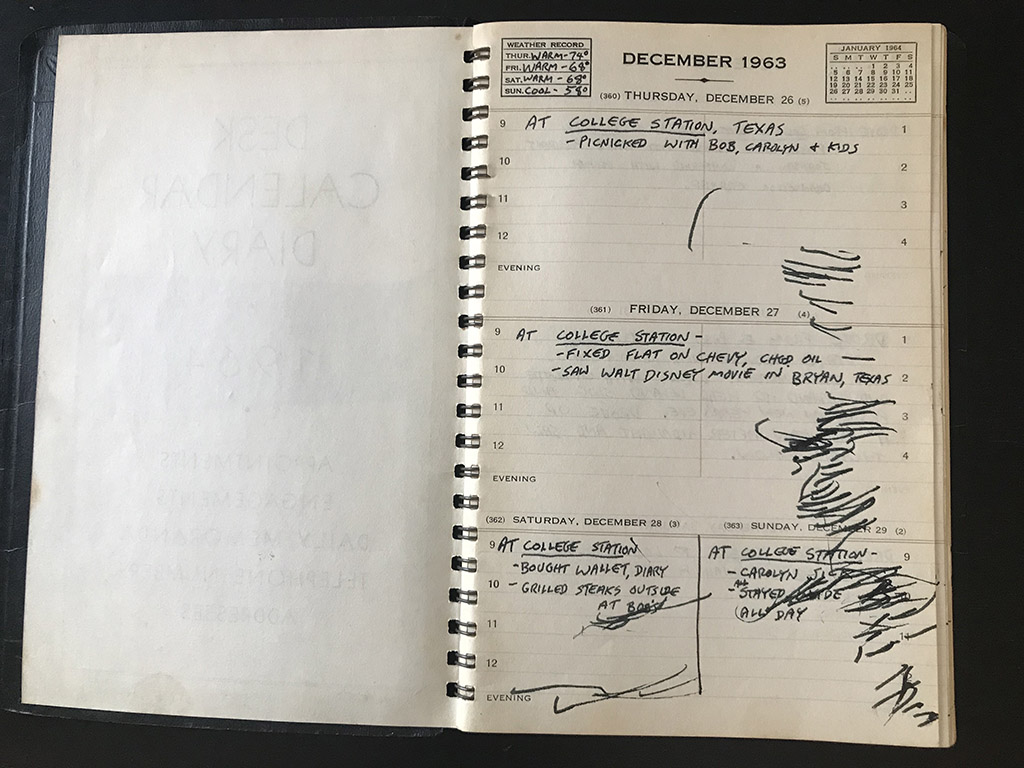 DESK
CALENDAR
DIARY
1964
APPOINTMENTS
ENGAGEMENTS
ADDRESSES
WEATHER RECORD
THUR. WARM - 74°
FRI. WARM - 68°
SAT. WARM - 68°
SUN. COOL - 58°
DECEMBER 1963
JANUARY 1964
S M T W T F S
1 2 3 4
5 6 7 8 9 10 11
12 13 14 15 16 17 18
19 20 21 22 23 24 25
26 27 28 29 30 31
(360) THURSDAY, DECEMBER 26 (5)
9 AT COLLEGE STATION, TEXAS 1
- PICNICKED WITH BOB, CAROLYN & KIDS
10 2
11 3
12 4
EVENING
(361) FRIDAY, DECEMBER 27 (4)
9 AT COLLEGE STATION - 1
- FIXED FLAT ON CHEVY, CHGD OIL
10 - SAW WALT DISNEY MOVIE IN BRYAN, TEXAS 2
11 3
12 4
EVENING
(362) SATURDAY, DECEMBER 28 (3)
9 AT COLLEGE STATION
- BOUGHT WALLET, DIARY
10 - GRILLED STEAKS OUTSIDE
AT BOB'S
11
12
EVENING
(363) SUNDAY, DECEMBER 29 (2)
AT COLLEGE STATION - 9
- CAROLYN SICK
ALL
- STAYED
(ALL DAY